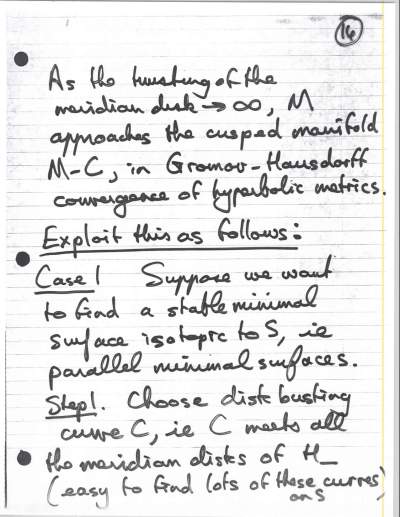 16
As the twisting of the
meridian disk → ∞, M
approaches the cusped manifold
M-C, in Gromov-Hausdorff
convergence of hyperbolic metrics.
Exploit this as follows:
Case 1 Suppose we want
to find a stable minimal
surface isotopic to S, ie
parallel minimal surfaces.
Step 1. Choose disk busting
curve C, ie C meets all
the meridian disks of H_
(easy to find lots of these curves)
on S